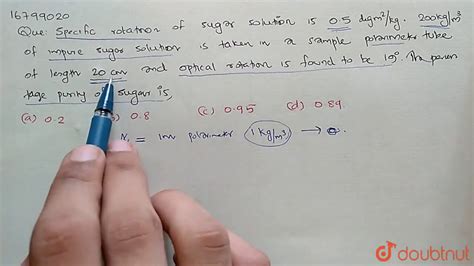 16799020
Que: Specific rotation of sugar solution is 0.5 deg m²/kg. 200kg/m³
of impure sugar solution is taken in a sample polarimeter tube
of length 20 cm and optical rotation is found to be 19°. The percen
tage purity of sugar is,
(a) 0.2 0.8 (c) 0.95 (d) 0.89.
= 1m polarimeter 1 kg/m³ → θ.
doubtnut